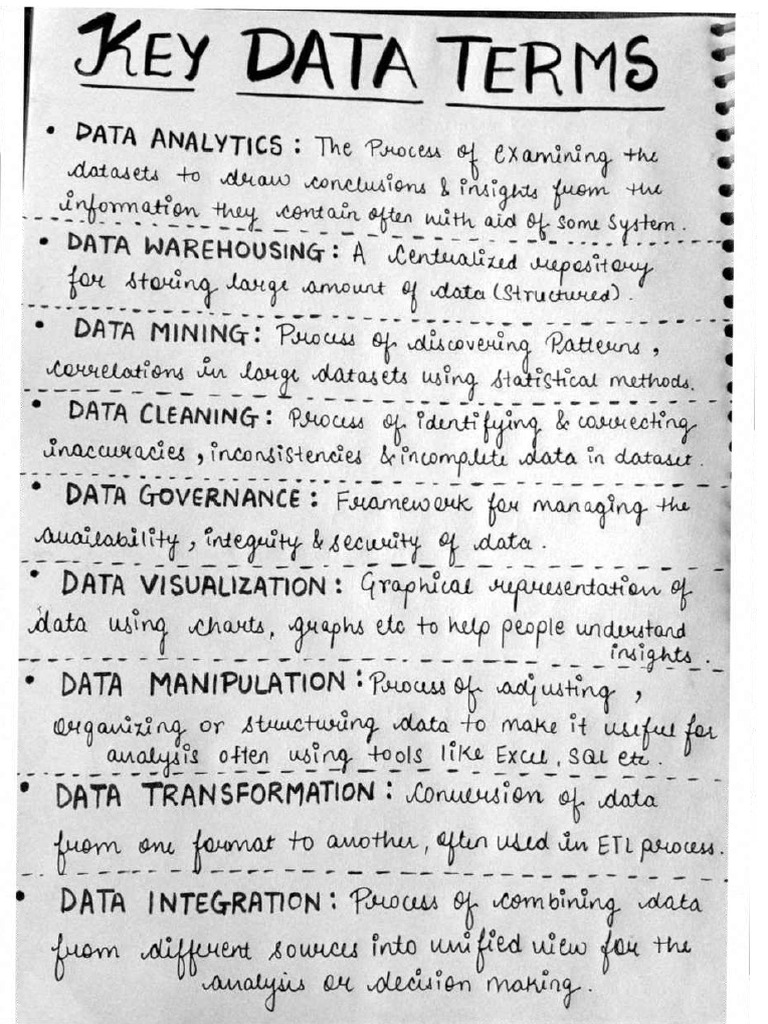 KEY DATA TERMS
• DATA ANALYTICS : The Process of examining the
datasets to draw conclusions & insights from the
information they contain often with aid of some system.
• DATA WAREHOUSING : A centralized repository
for storing large amount of data (structured).
• DATA MINING : Process of discovering Patterns ,
correlations in large datasets using statistical methods.
• DATA CLEANING : Process of identifying & correcting
inaccuracies , inconsistencies & incomplete data in dataset.
• DATA GOVERNANCE : Framework for managing the
availability , integrity & security of data .
• DATA VISUALIZATION : Graphical representation of
data using charts, graphs etc to help people understand
insights .
• DATA MANIPULATION : Process of adjusting ,
organizing or structuring data to make it useful for
analysis often using tools like Excel, SQL etc .
• DATA TRANSFORMATION : conversion of data
from one format to another, often used in ETL process.
• DATA INTEGRATION : Process of combining data
from different sources into unified view for the
analysis or decision making .